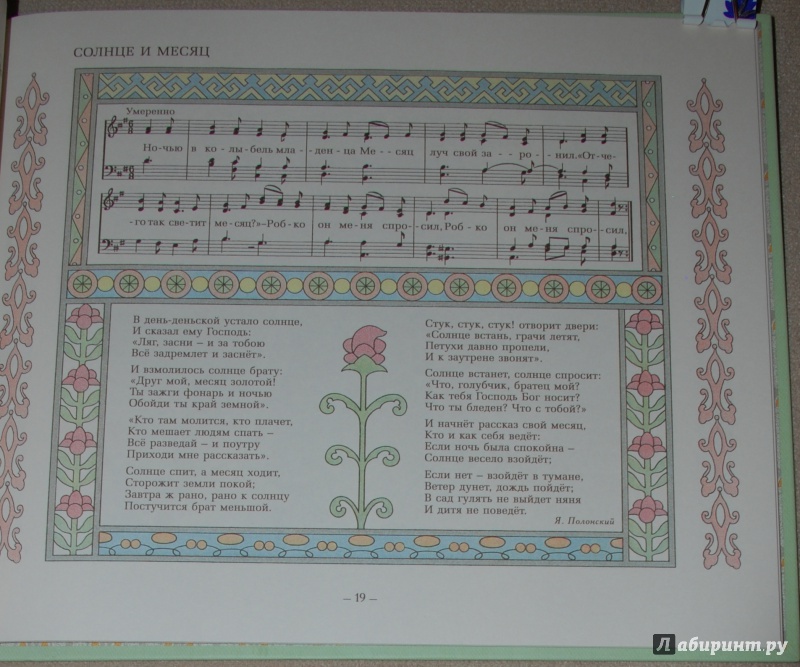 СОЛНЦЕ И МЕСЯЦ
Умеренно
Но-чью в ко-лы-бель мла--ден-ца Ме--сяц луч свой за--ро--нил.«От-че-
-го так све-тит ме-сяц?»-Роб-ко он ме-ня спро-сил, Роб-ко он ме-ня спро-сил,
В день-деньской устало солнце,
И сказал ему Господь:
«Ляг, засни – и за тобою
Всё задремлет и заснёт».
И взмолилось солнце брату:
«Друг мой, месяц золотой!
Ты зажги фонарь и ночью
Обойди ты край земной».
«Кто там молится, кто плачет,
Кто мешает людям спать –
Всё разведай – и поутру
Приходи мне рассказать».
Солнце спит, а месяц ходит,
Сторожит земли покой;
Завтра ж рано, рано к солнцу
Постучится брат меньшой.
Стук, стук, стук! отворит двери:
«Солнце встань, грачи летят,
Петухи давно пропели,
И к заутрене звонят».
Солнце встанет, солнце спросит:
«Что, голубчик, братец мой?
Как тебя Господь Бог носит?
Что ты бледен? Что с тобой?»
И начнёт рассказ свой месяц,
Кто и как себя ведёт:
Если ночь была спокойна –
Солнце весело взойдёт;
Если нет – взойдёт в тумане,
Ветер дунет, дождь пойдёт;
В сад гулять не выйдет няня
И дитя не поведёт.
Я. Полонский
– 19 –
Лабиринт.ру